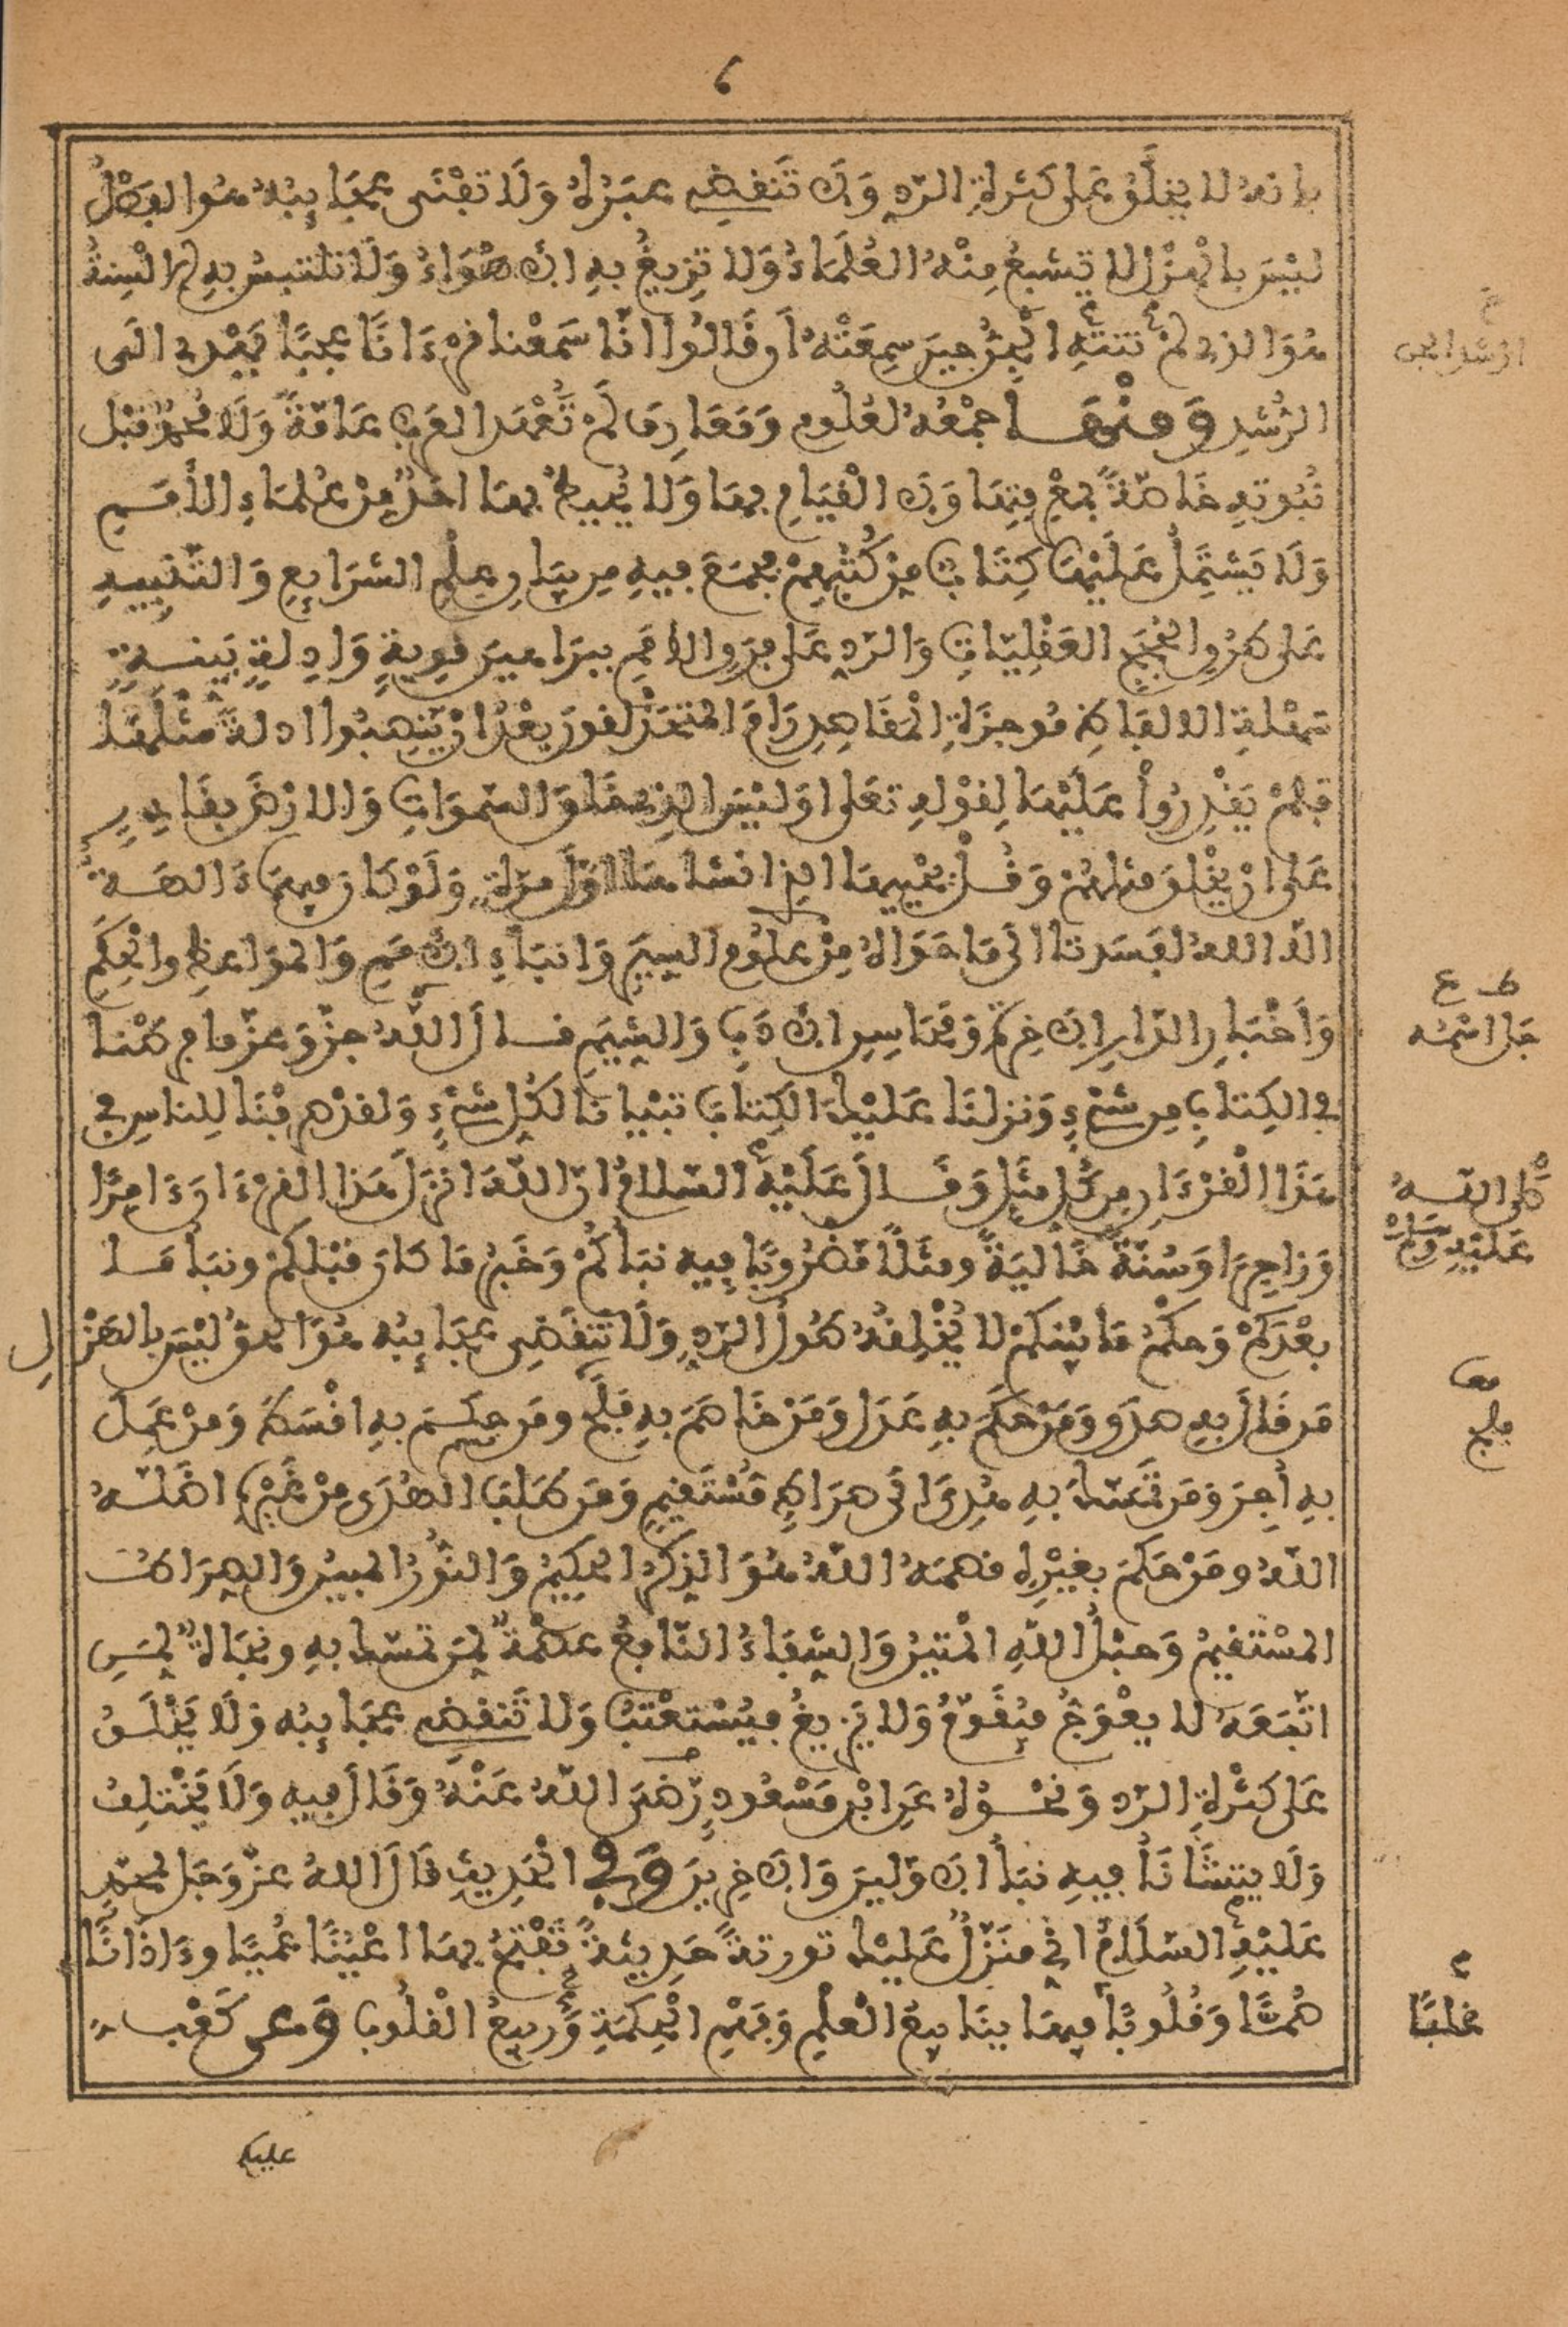 ٦
بانه لا يخلق على كثرة الرد ولا تنقضي عبره ولا تفنى عجايبه هو الفصل
ليس بالهزل لا تشبع منه العلماء ولا تزيغ به الاهواء ولا تلتبس به الالسنة
هو الذي لم تنته الجن حين سمعته ان قالوا انا سمعنا قرءانا عجبا يهدي الى
الرشد ومنها جمعه لعلوم ومعارف لم تعهد العرب عامة ولا محمد قبل
نبوته خاصة بمعرفتها ولا القيام بها ولا يحيط بها احد من علماء الأمم
ولا يشتمل عليها كتاب من كتبهم فجمع فيه من بيان علم الشرايع والتنبيه
على طرق الحجج العقليات والرد على فرق الامم ببراهين قوية وادلة بينة
سهلة الالفاظ موجزة المقاصد رام المتحذلقون بعد ان ينصبوا ادلة مثلها
فلم يقدروا عليها لقوله تعلى اوليس الذي خلق السموات والارض بقادر
على ان يخلق مثلهم وقل يحييها الذي انشاها اول مرة ولو كان فيهما ءالهة
الا الله لفسدتا الى ما حواه من علوم السير وانباء الامم والمواعظ والحكم
واخبار الدار الاخرة ومحاسن الاداب والشيم قال الله جل وعز ما فرطنا
في الكتاب من شيء ونزلنا عليك الكتاب تبيانا لكل شيء ولقد ضربنا للناس في
هذا القرءان من كل مثل وقال عليه السلام ان الله انزل هذا القرءان ءامرا
وزاجرا وسنة خالية ومثلا مضروبا فيه نبأكم وخبر ما كان قبلكم ونبأ ما
بعدكم وحكم ما بينكم لا يخلقه طول الرد ولا تنقضي عجايبه هو الحق ليس بالهزل
من قال به صدق ومن حكم به عدل ومن خاصم به فلج ومن حكم به اقسط ومن عمل
به أجر ومن تمسك به هدي الى صراط مستقيم ومن طلب الهدى من غيره اضله
الله ومن حكم بغيره قصمه الله هو الذكر الحكيم والنور المبين والصراط
المستقيم وحبل الله المتين والشفاء النافع عصمة لمن تمسك به ونجاة لمن
اتبعه لا يعوج فيقوم ولا يزيغ فيستعتب ولا تنقضي عجايبه ولا يخلق
على كثرة الرد ونحوه عن ابن مسعود رضي الله عنه وقال فيه ولا يختلف
ولا يتشانأ فيه نبأ الاولين والاخرين وفي الحديث قال الله عز وجل لمحمد
عليه السلام اني منزل عليك تورية حديثة تفتح بها اعينا عميا وءاذانا
صما وقلوبا فيها ينابيع العلم وفهم الحكمة وربيع القلوب وعن كعب
جل اسمه
صلى الله
عليه وسلم
فلج
غلبا
عليكم